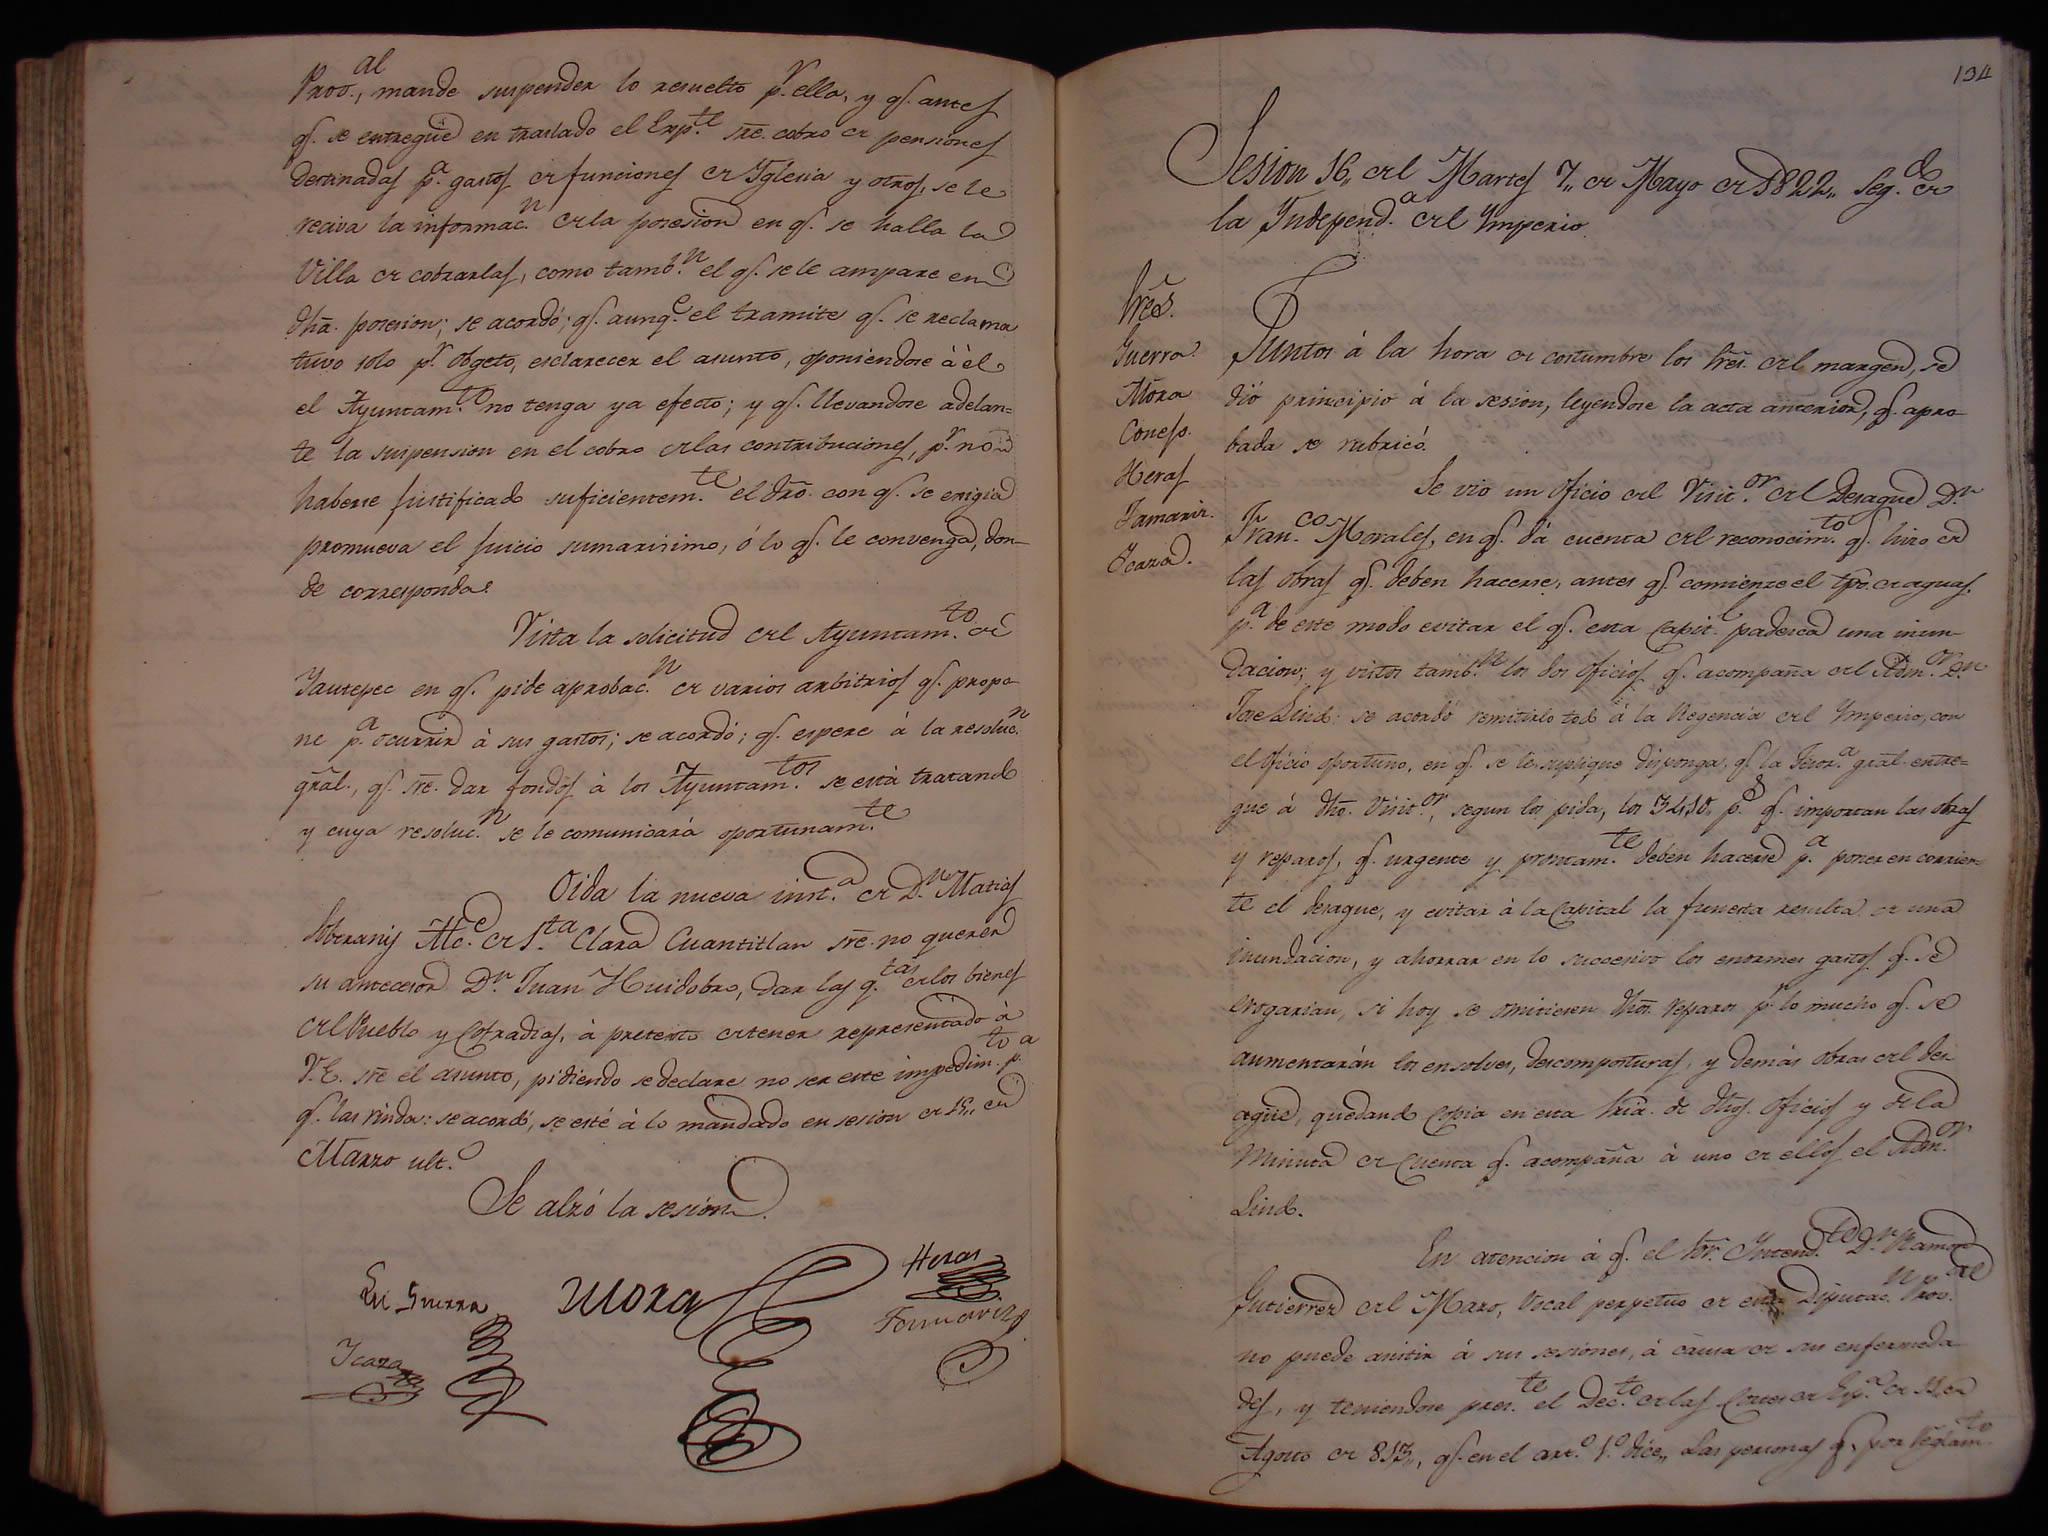 Prov.al, mande suspender lo resuelto p.r ella, y q.e antes
q.e se entregue en traslado el Exp.te sre. cobro de pensiones
destinadas p.a gastos de funciones de Yglesia y otros, se le
reciva la informac.n de la posesion en q.e se halla la
Villa de cobrarlas, como tamb.n el q.e se le ampare en
dha. posesion; se acordó; q.e aunq.e el tramite q.e se reclama
tuvo solo p.r obgeto, esclarecer el asunto, oponiendose á él
el Ayuntam.to no tenga ya efecto; y q.e llevandose adelan-
te la suspension en el cobro de las contribuciones, p.r no
haberse justificado suficientem.te el dro. con q.e se exigia
promueva el juicio sumarisimo, ó lo q.e le convenga, don-
de corresponda.
Vista la solicitud del Ayuntam.to de
Yautepec en q.e pide aprobac.n de varios arbitrios q.e propo-
ne p.a ocurrir á sus gastos; se acordó; q.e espere á la resoluc.n
gral., q.e sre. dar fondos á los Ayuntam.tos se está tratando
y cuya resoluc.n se le comunicará oportunam.te
Oida la nueva inst.a de D.n Matias
Soberanis Alc.e de S.ta Clara Cuautitlan sre. no querer
su antecesor D.n Juan Huidobro, dar las q.tas de los bienes
del Pueblo y Cofradias, á pretexto de tener representado á
V.E. sre el asunto, pidiendo se declare no ser este impedim.to p.a
q.e las rinda: se acordó, se esté á lo mandado en sesion de 15,, de
Marzo ult.o
Se alzó la sesion.
Guerra Mora Heras
Ycaza Tamariz
134
Sesion 16,, del Martes 7,, de Mayo de 1822,, seg.do de
la Independ.a del Ymperio.
Sres.
Guerra.
Mora
Conejo.
Heras
Tamariz.
Ycaza.
Juntos á la hora de costumbre los Sres. del margen, se
dió principio á la sesion, leyendose la acta anterior, q.e apro-
bada se rubricó.
Se vio un oficio del Visit.or del Desague D.n
Fran.co Morales, en q.e dá cuenta del reconocim.to q.e hizo de
las obras q.e deben hacerse, antes q.e comienze el tpo. de aguas,
p.a de este modo evitar el q.e esta Capit.l padesca una inun-
dacion; y vistos tamb.n los dos oficios q.e acompaña del Adm.or D.n
Jose Lind: se acordó remitirlo todo á la Regencia del Ymperio, con
el oficio oportuno, en q.e se le suplique disponga, q.e la Tesor.a gral. entre-
gue á dho. Visit.or, segun los pida, los 3410 p.s q.e importan las obras
y reparos, q.e urgente y prontam.te deben hacerse p.a poner en corrien-
te el desague, y evitar á la Capital la funesta resulta de una
inundacion, y ahorrar en lo succesivo los enormes gastos q.e se
erogarian, si hoy se omitiesen dhos. reparos p.r lo mucho q.e se
aumentarán los ensolves, descomposturas, y demás obras del des-
ague, quedando Copia en esta Sria. de dhos. oficios y de la
Minuta de Cuenta q.e acompaña á uno de ellos el Adm.or
Lind.
En atencion á q.e el Sor. Yntend.te D.n Ramon
Gutierrez del Mazo, Vocal perpetuo de esta Diputac.n Prov.al
no puede asistir á sus sesiones, á causa de sus enfermeda-
des, y teniendose pres.te el Dec.to de las Cortes de Esp.a de 11,, de
Agosto de 813,, q.e en el art.o 1.o dice,, Las personas q.e por Reglam.to